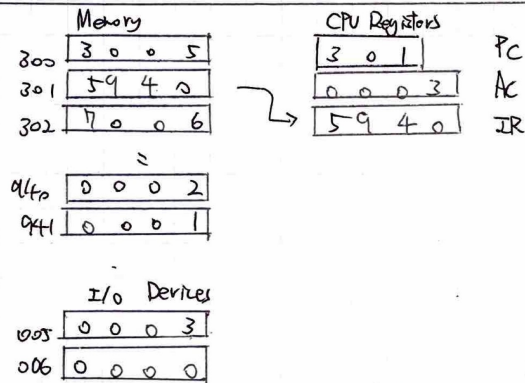 Memory
300 3 0 0 5
301 5 9 4 0
302 7 0 0 6
940 0 0 0 2
941 0 0 0 1
I/O Devices
005 0 0 0 3
006 0 0 0 0
CPU Registors
3 0 1 PC
0 0 0 3 AC
5 9 4 0 IR